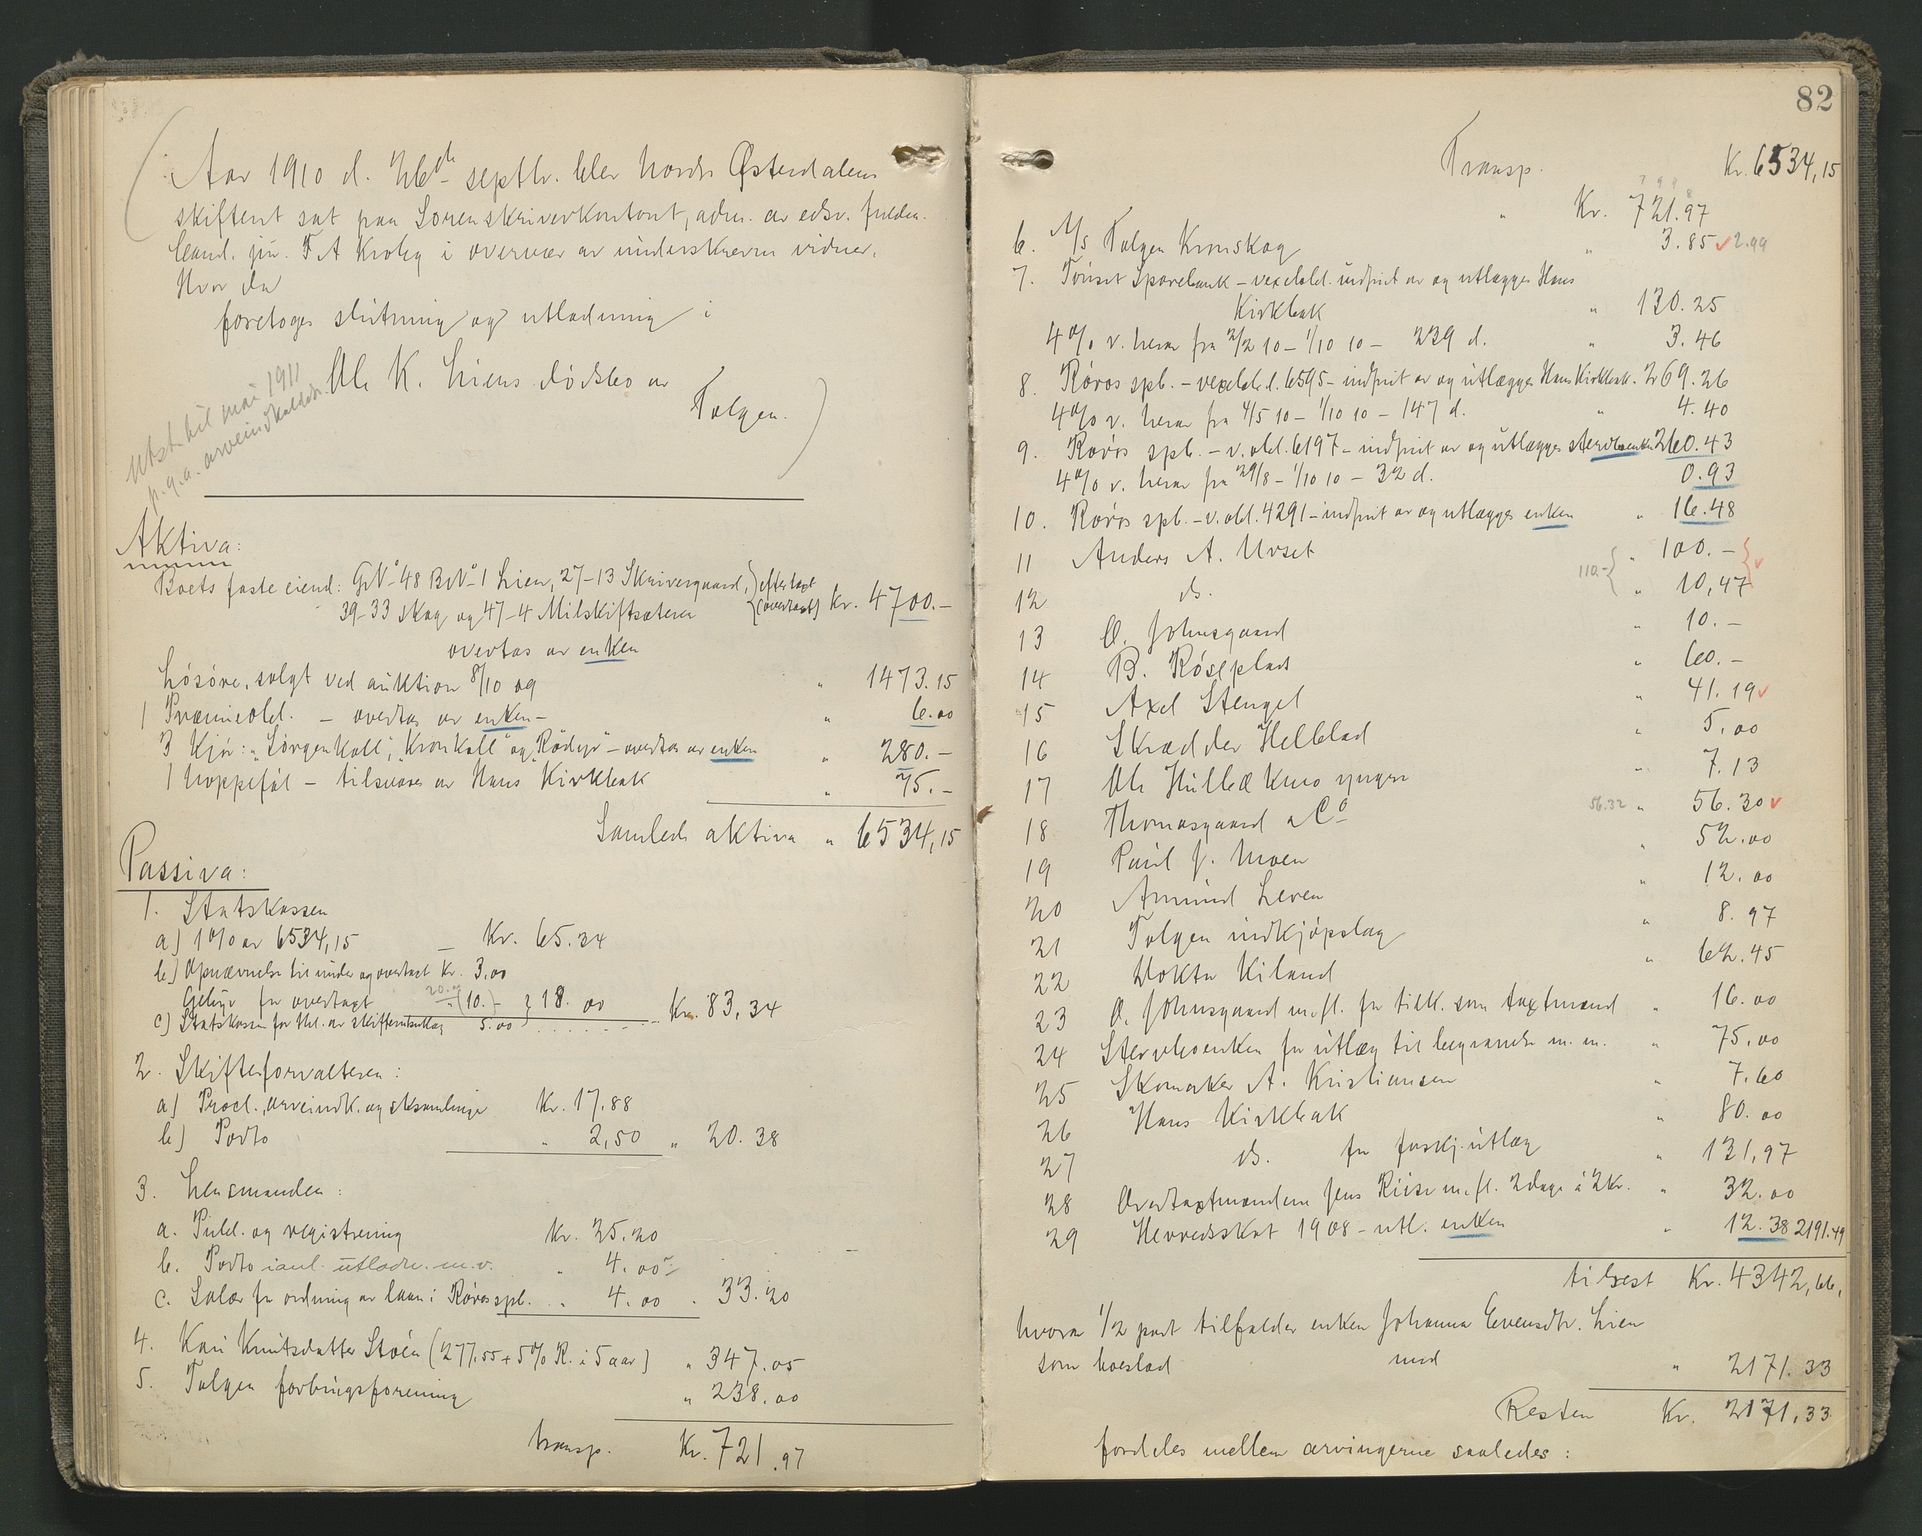 Aar 1910 d. 26de septbr. blev Nordre Østerdalens
skifteret sat paa Sorenskriverkontoret, adm. av edsv. fuldm.
Cand. jur. F. A. Krohg i overvær av underskrevne vidner.
Hvor da
foretoges slutning og utlodning i
Ole K. Liens dødsbo av
Tolgen.
Utst. til mai 1911
p. g. a. arveindkaldelse
Aktiva:
Boets faste eiend: GNo 48 BNo 1 Lien, 27-13 Skrivergaard, (efter taxt
39-33 Skog og 47-4 Milskiftsæteren (overtaxt) kr. 4700.-
overtas av enken
Løsøre, solgt ved auktion 8/10 09 " 1473.15
1 Præmieobl. - overtas av enken - " 6.00
3 Kjør: "Sørgenkall", "Kronkall" og "Rødsya" - overtas av enken " 280.-
1 hoppeføl - tilsvares av Hans Kirkbak " 75.-
Samlede aktiva " 6534,15
Passiva:
1. Statskassen
a) 1% av 6534,15 - Kr. 65.34
b) Opnævnelse til under og overtaxt Kr. 3,00
Gebyr for overtaxt 20.- (10.-) } 18.00
c) Statskassen for Hel. av skifteutlæg 5.00 Kr. 83,34
2. Skifteforvalteren:
a) Procl., arveindk. og sksamlinge Kr. 17,88
b) Porto " 2,50 " 20.38
3. Lensmanden:
a. Publ. og registrering kr. 25.20
b. Porto ianl. utlodn. m.v. " 4.00
c. Salær for ordning av laan i Røros spb. " 4.00 " 33.20
4. Kari Knutsdatter Støen (277,55 + 5% R. i 5 aar) " 347.05
5. Tolgen forbrugsforening " 238.00
transp. Kr. 721.97
82
Transp. Kr. 6534,15
" Kr. 721.97
6. A/S Tolgen Kromskog " 3.85 2.99
7. Tønset Sparebank - vexelobl. indfriet av og utlægges Hans
Kirkbak " 130.25
4% r. herav fra 2/2 10 - 1/10 10 - 239 d. " 3.46
8. Røros spb. - vexelobl. 6595 - indfriet av og utlægges Hans Kirkbak. 269.26
4% r. herav fra 4/5 10 - 1/10 10 - 147 d. " 4.40
9. Røros spb. - v. obl. 6197 - indfriet av og utlægges stervboenken 260.43
4% r. herav fra 29/8 - 1/10 10 - 32 d. 0.93
10. Røros spb. - v. obl. 4291 - indfriet av og utlægges enken " 16.48
11 Anders A. Urset " 100.-
110.-
12 do. " 10,47
13 O. Johnsgaard " 10.-
14 B. Røseplads " 60.-
15 Axel Stengel " 41.19
16 Skrædder Helblad " 5,00
17 Ole Hulbækmo yngre " 7.13
18 Thomasgaard & Co 56.32 " 56.30
19 Paul J. Moen " 52.00
20 Amund Leren " 12.00
21 Tolgen indkjøpslag " 8.97
22 Doktor Kiland " 62.45
23 O. Johnsgaard m.fl. for tilk. som taxtmænd " 16.00
24 Stervboenken for utlæg til begravelse m.m. " 75,00
25 Skomaker A. Kristiansen " 7.60
26 Hans Kirkbak " 80.00
27 do. for forskj. utlæg " 131,97
28 Overtaxtmændene Jens Riise m.fl. 2 dage á 2 Kr. " 32.00
29 Herredsskat 1908 - utl. enken " 12.38 2191.49
tilrest Kr. 4342,66,
hvorav 1/2 part tilfalder enken Johanna Evensdtr. Lien
som boeslod med " 2171.33
Resten Kr. 2171,33
fordeles mellem arvingerne saaledes: